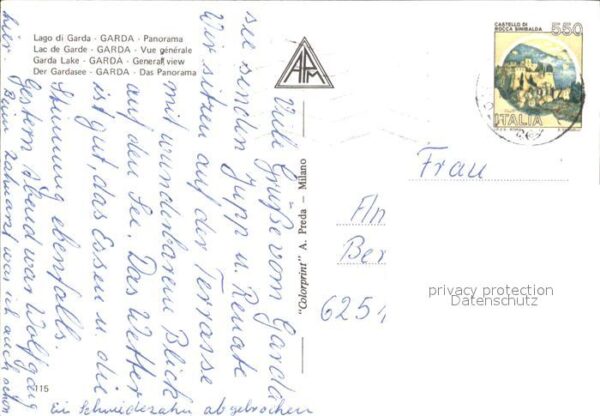 Lago di Garda - GARDA - Panorama
Lac de Garde - GARDA - Vue générale
Garda Lake - GARDA - General view
Der Gardasee - GARDA - Das Panorama
APM
CASTELLO DI
ROCCA SINIBALDA
550
ITALIA
"Colorprint" A. Preda - Milano
115
Viele Grüße vom Garda
see senden Jupp u. Renate
Wir sitzen auf der Terrasse
mit wunderbarem Blick
auf den See. Das Wetter
ist gut, das Essen u. die
Stimmung ebenfalls.
Gestern Abend war Wolfgang
hier. Beim Zahnarzt war ich auch schon
Ein Schneidezahn abgebrochen
Frau
An
Ber
6251
privacy protection
Datenschutz